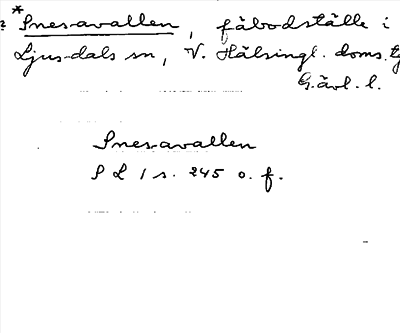 ? * Snesavallen, fäbodställe i
Ljusdals sn, V. Hälsingl. doms. tj
Gävl. l.
Snesavallen
S L 1 s. 245 o. f.